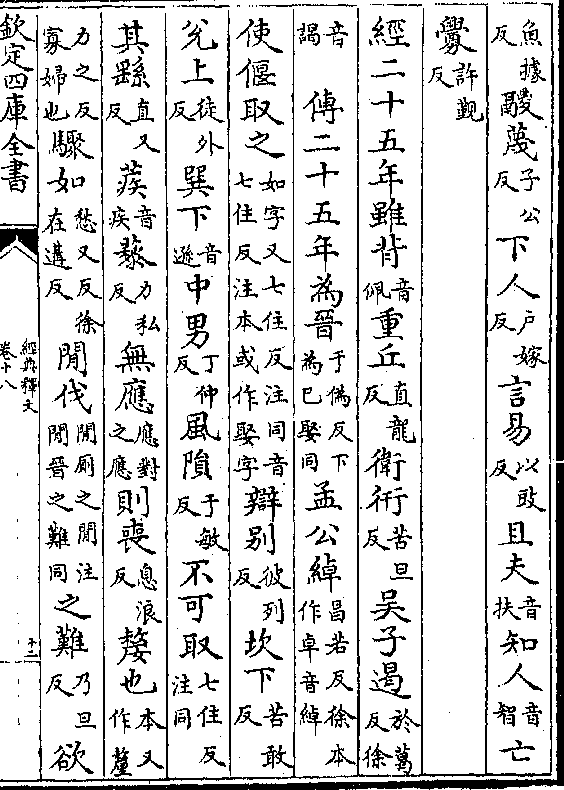 魚據反鬷蔑子公反下人戶嫁反言易以豉反且夫音扶知人音智亡
釁許覲反
經二十五年雖背音佩重丘直龍反衛衎苦旦反吳子遏於葛反徐
音謁　傳二十五年為晉于偽反下為已娶同孟公綽昌若反徐本作卓音綽
使偃取之如字又七住反注同音七住反注本或作娶字辯別彼列反坎下苦敢反
兊上徒外反巽下音遜中男丁仲反風隕于敏反不可取七住反注同
其繇直又反蒺音疾蔾力私反無應應對之應則喪息浪反嫠也本又作釐
力之反寡婦也驟如愁又反徐在遘反閒伐閒厠之閒注閒晉之難同之難乃旦反欲
欽定四庫全書
經典釋文
卷十八
十二